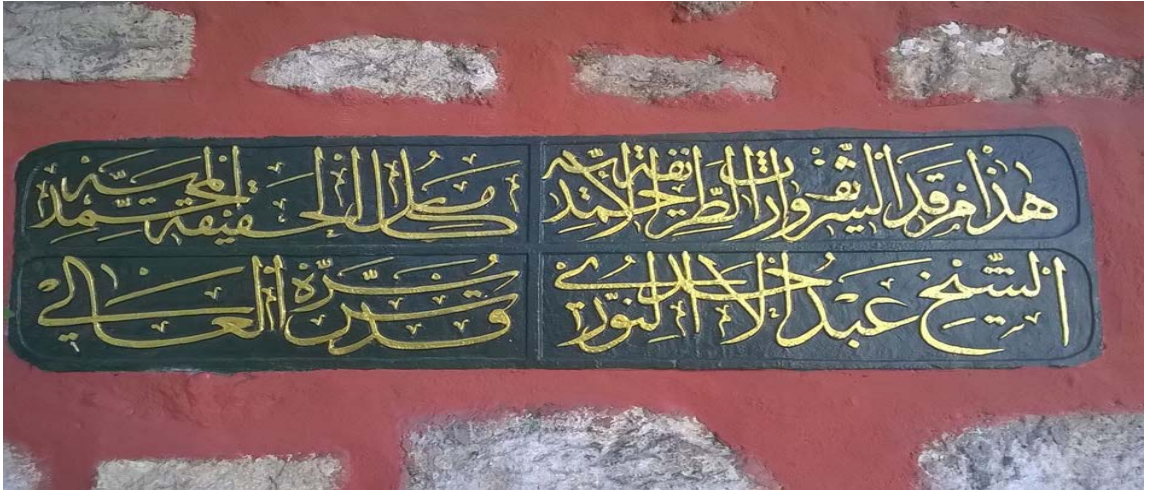 هذا مرقد الشريف وارث الطريقة الاحمدية
كامل الحقيقة المحمدية
الشيخ عبد الاحد النوري
قدس سره العالي